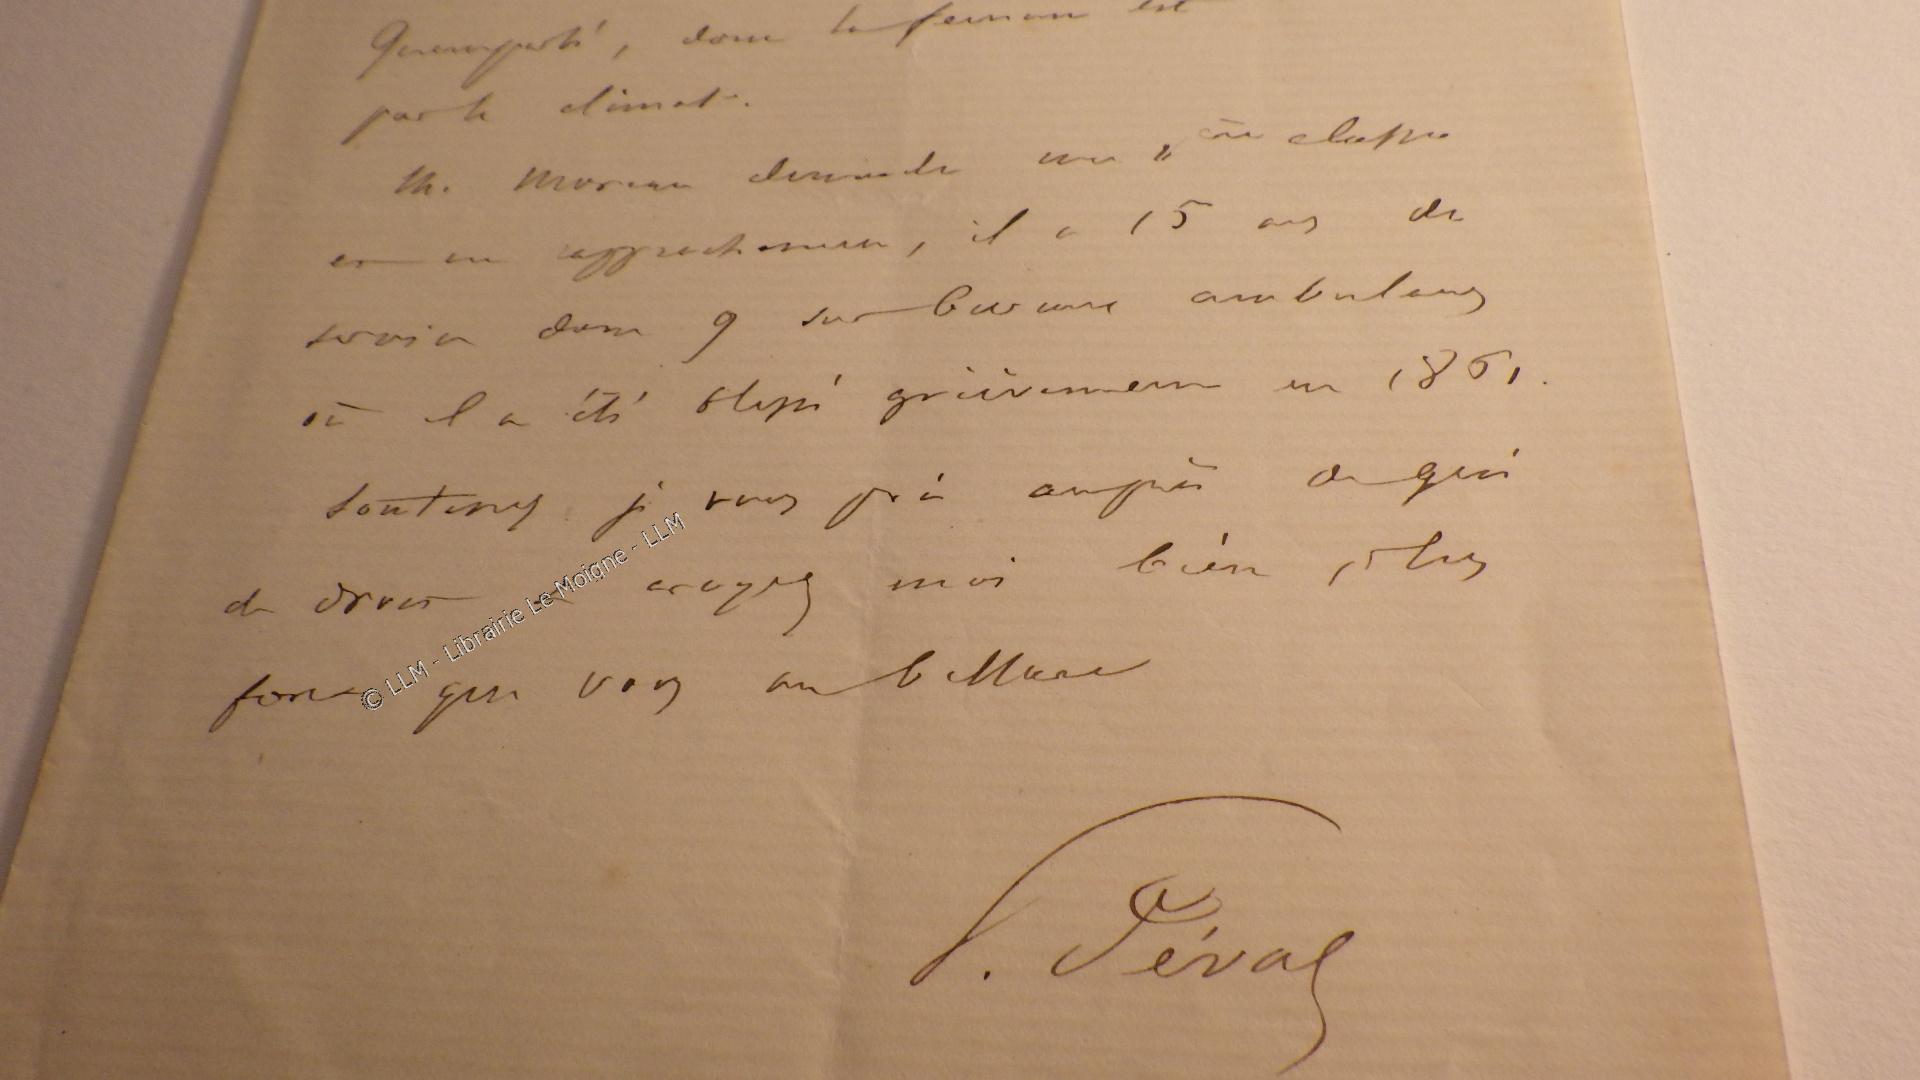 Quemperlé, dont la femme est
par le climat.
M. Moreau demande une classe
et un rapprochement, il a 15 ans de
service dont 9 sur bureaux ambulans
où il a été blessé grièvement en 1861.
Soutenez je vous prie auprès de qui
de droit et croyez moi bien
que vous
P. Féval
© LLM - Librairie Le Moigne - LLM